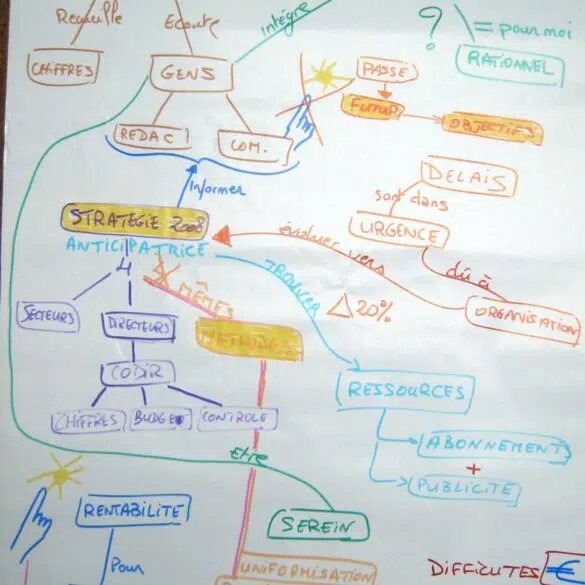 Recueille
Ecoute
Intègre
? \ = pour moi
CHIFFRES
GENS
PASSE
RATIONNEL
FUTUR
OBJECTIFS
REDAC
COM.
Informer
DELAIS
sont dans
URGENCE
STRATEGIE 2008
ANTICIPATRICE
évoluer vers
dû à
ORGANISATION
4
MÊMES
METHODES
TROUVER
△ 20%
SECTEURS
DIRECTEURS
CODIR
CHIFFRES
BUDGET
CONTROLE
RESSOURCES
ABONNEMENT
+
PUBLICITE
Etre
SEREIN
RENTABILITE
Pour
UNIFORMISATION
DIFFICUTES €